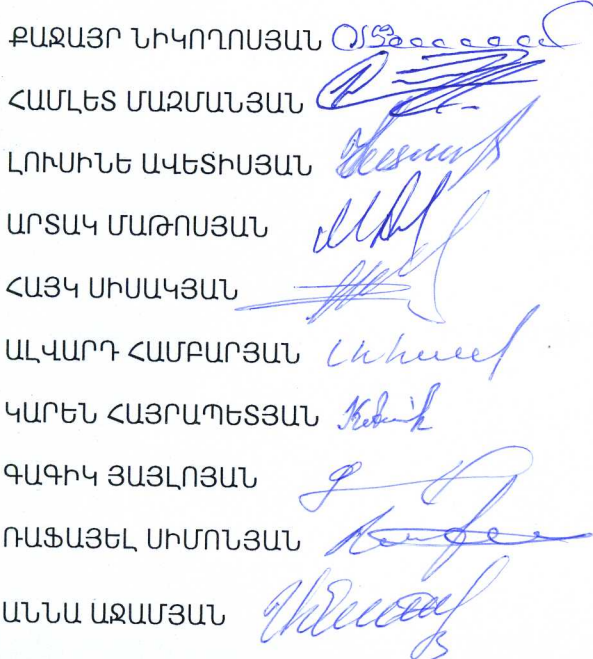 ՔԱՋԱՅՐ ՆԻԿՈՂՈՍՅԱՆ
ՀԱՄԼԵՏ ՄԱԶՄԱՆՅԱՆ
ԼՈՒՍԻՆԵ ԱՎԵՏԻՍՅԱՆ
ԱՐՏԱԿ ՄԱԹՈՍՅԱՆ
ՀԱՅԿ ՍԻՍԱԿՅԱՆ
ԱԼՎԱՐԴ ՀԱՄԲԱՐՅԱՆ
ԿԱՐԵՆ ՀԱՅՐԱՊԵՏՅԱՆ
ԳԱԳԻԿ ՅԱՅԼՈՅԱՆ
ՌԱՖԱՅԵԼ ՍԻՄՈՆՅԱՆ
ԱՆՆԱ ԱՋԱՄՅԱՆ